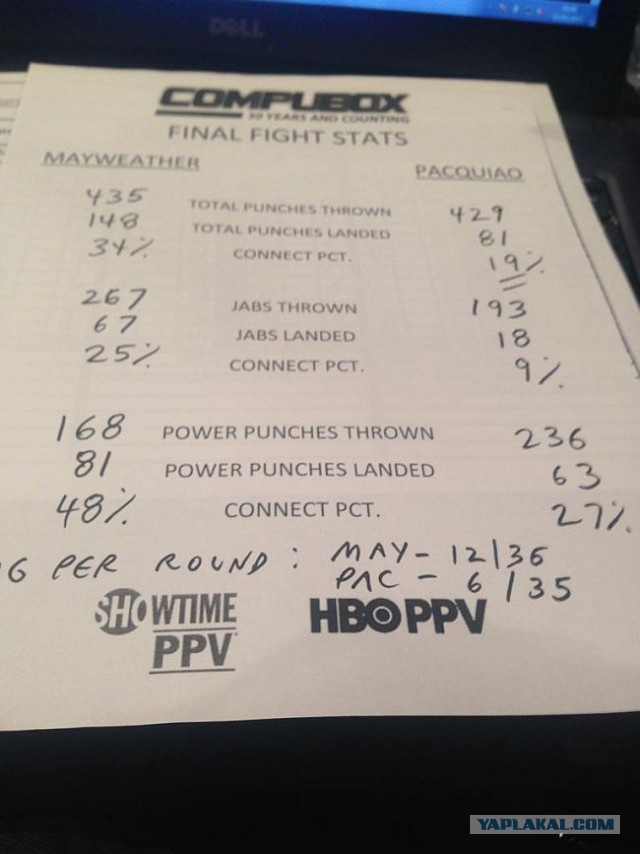 DELL
COMPUBOX
30 YEARS AND COUNTING
FINAL FIGHT STATS
MAYWEATHER PACQUIAO
435 TOTAL PUNCHES THROWN 429
148 TOTAL PUNCHES LANDED 81
34% CONNECT PCT. 19%
267 JABS THROWN 193
67 JABS LANDED 18
25% CONNECT PCT. 9%
168 POWER PUNCHES THROWN 236
81 POWER PUNCHES LANDED 63
48% CONNECT PCT. 27%
G PER ROUND: MAY - 12/36
PAC - 6/35
SHOWTIME PPV HBO PPV
YAPLAKAL.COM